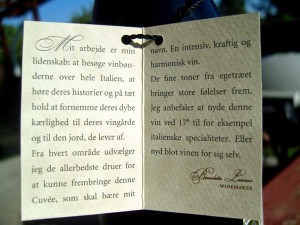 Mit arbejde er min
lidenskab: at besøge vinbøn-
derne over hele Italien, at
høre deres historier og på tæt
hold at fornemme deres dybe
kærlighed til deres vingårde
og til den jord, de lever af.
Fra hvert område udvælger
jeg de allerbedste druer for
at kunne frembringe denne
Cuvée, som skal bære mit
navn. En intensiv, kraftig og
harmonisk vin.
De fine toner fra egetræet
bringer store følelser frem.
Jeg anbefaler at nyde denne
vin ved 17° til for eksempel
italienske specialiteter. Eller
nyd blot vinen for sig selv.
WINEMAKER